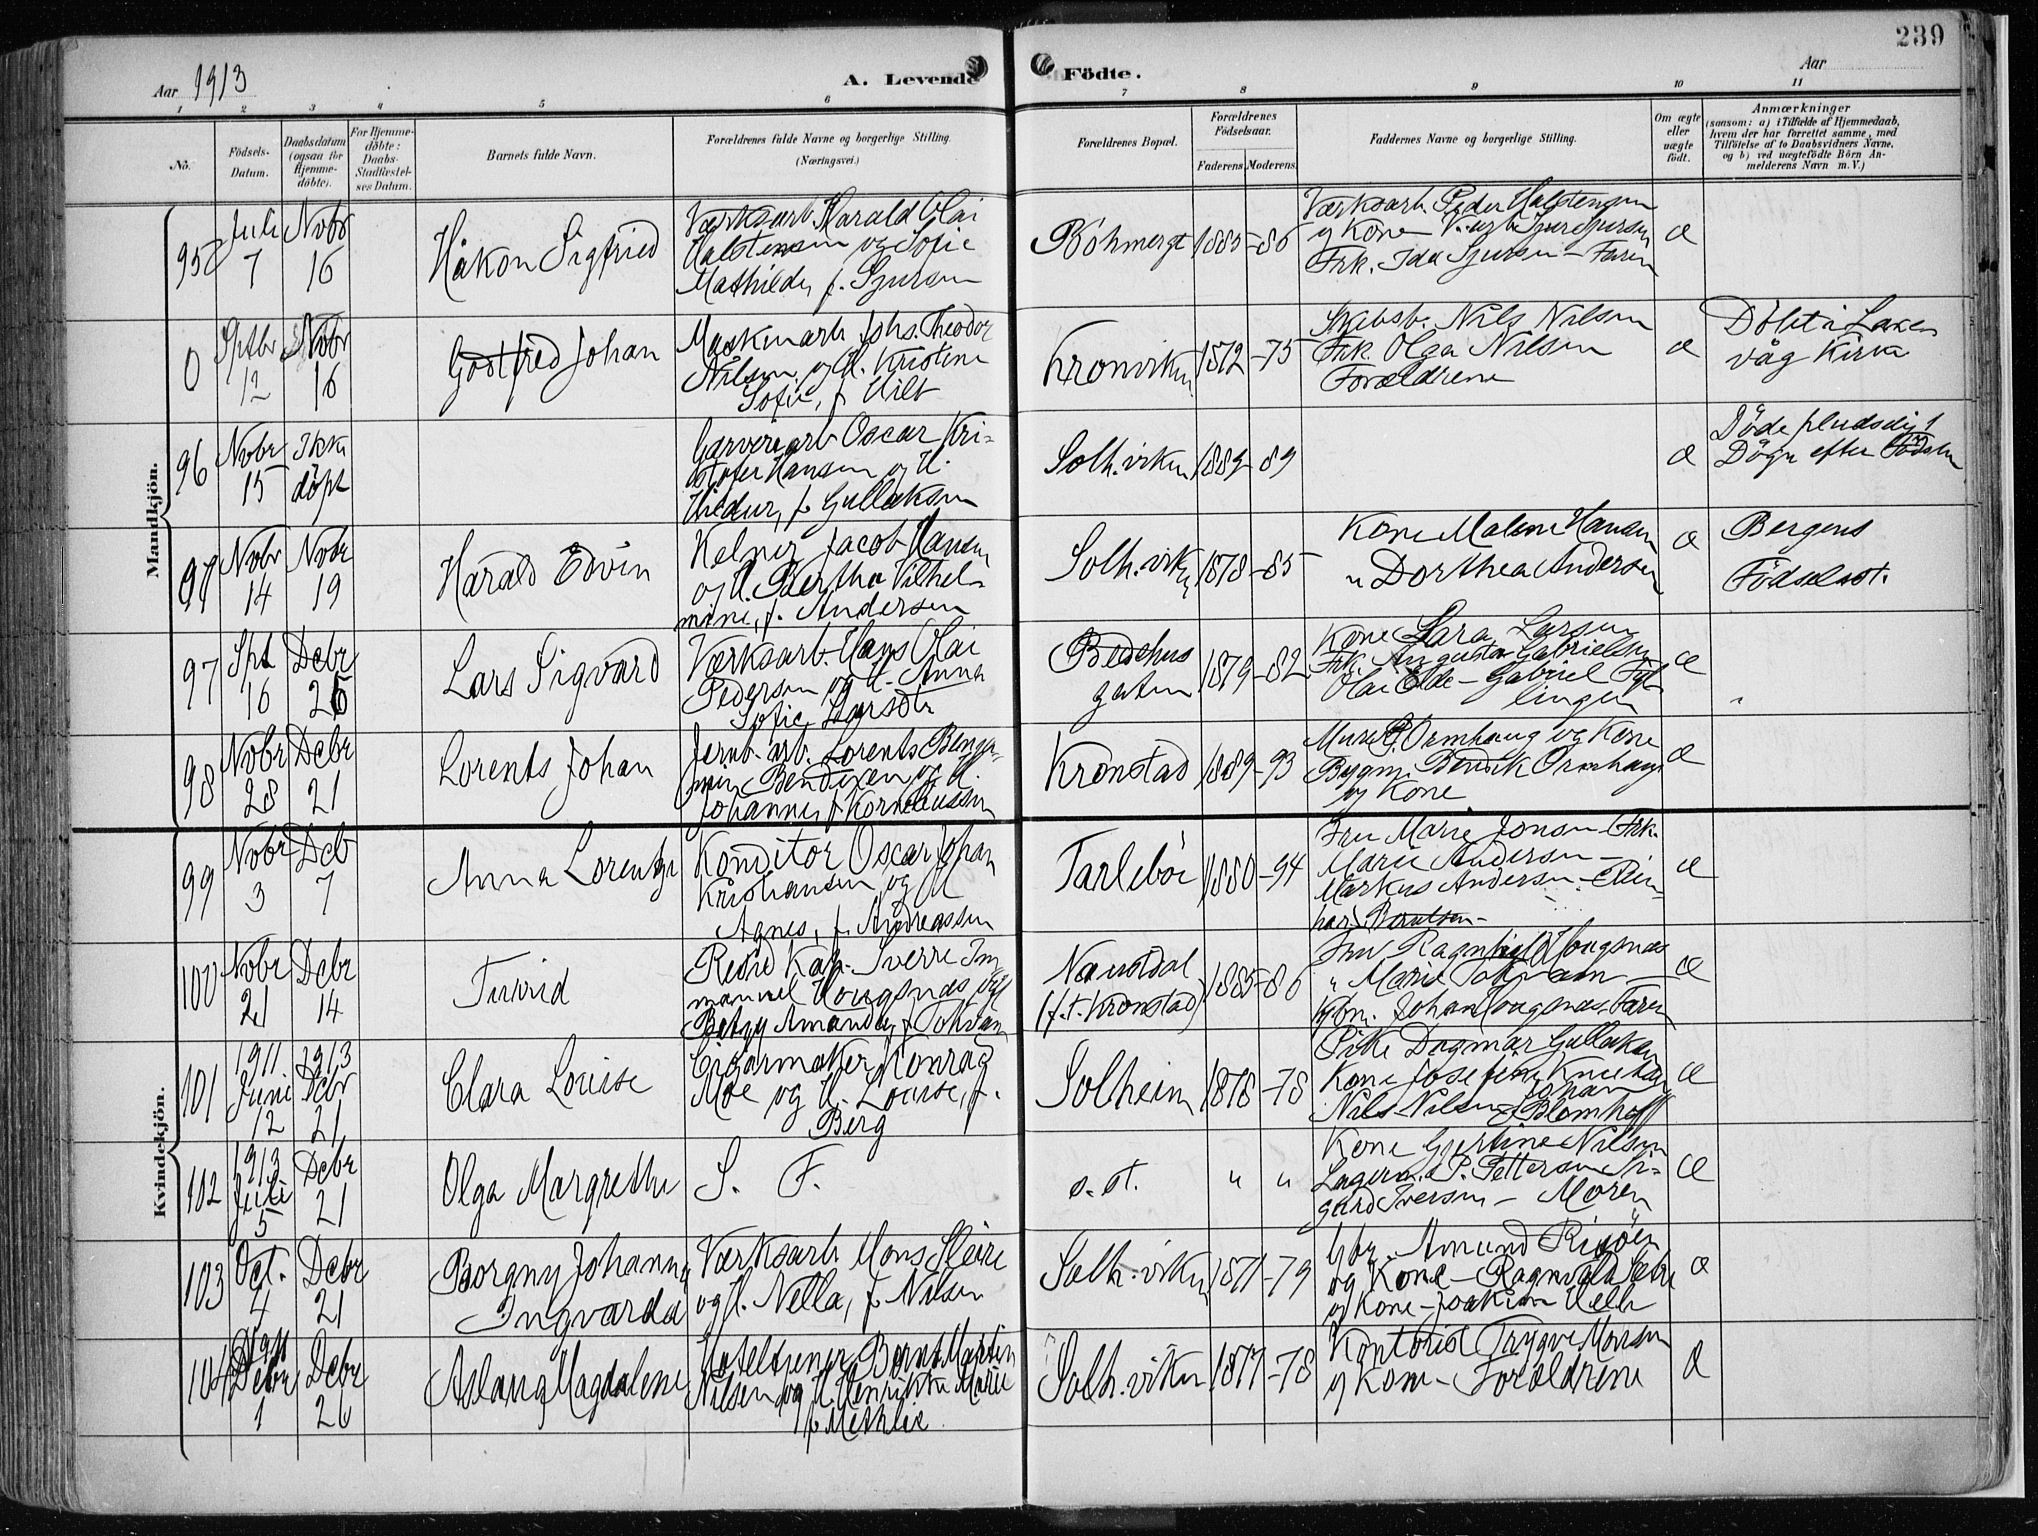 239
Aar 1913
A. Levende Födte.
Aar
1 2 3 4 5 6 7 8 9 10 11
No.
Födsels-Datum.
Daabsdatum (ogsaa for Hjemme-döbte).
For Hjemme-döbte: Daabs-Stadfæstel-ses Datum.
Barnets fulde Navn.
Forældrenes fulde Navne og borgerlige Stilling.
(Næringsvei.)
Forældrenes Bopæl.
Forældrenes Födselsaar.
Faderens. Moderens.
Faddernes Navne og borgerlige Stilling.
Om ægte eller uægte födt.
Anmærkninger
(saasom: a) i Tilfælde af Hjemmedaab,
hvem der har forrettet samme, med
Tilföielse af to Daabsvidners Navne,
og b) ved uægtefödte Börn An-
melderens Navn m. V.)
Mandkjön.
Juli 7
Novbr 16
Håkon Sigfried
Værksarb. Harald Olai
Halstensen og Sofie
Mathilde, f. Sjursen
Böhmergt
1885-86
Værksarb. Peder Halstensen
og Kone
Frk. Ida Sjursen - Faren
æ
0
Sptbr 12
Novbr 16
Godtfred Johan
Maskinarb. Johs. Theodor
Nilsen og H. Kristine
Sofie, f.
Kronviken
1872-75
Nils Nilsen
Frk. Olga Nilsen
Forældrene
æ
Döbt i Laxe
våg Kirke
96
Novbr 15
Ikke döpt
Garveriarb Oscar Kri-
stofer Hansen og H.
Hildur, f. Gullaksen
Solh.viken
1889 89
æ
Döde pludselig 1
Dögn efter Födslen
97
Novbr 14
Novbr 19
Harald Edvin
Kelner Jacob Hansen
og H. Bertha Vilhel-
mine, f. Andersen
Solh.viken
1878-85
Kone Malene Hansen
" Dorthea Andersen
æ
Bergens
Födselsst.
97
Spt 16
Debr 26
Lars Sigvard
Værksarb. Hans Olai
Pedersen og H. Anna
Sofie Larsdtr
Bedehus
gaten
1879-82
Kone Sara Larsen
Frk. Augusta Gabrielsen
Olai Eide - Gabriel
lingen
æ
"
98
Novbr 28
Debr 21
Lorents Johan
Jernb. arb. Lorents Benja-
min Bendixen og H.
Johanne, f. Korneliussen
Kronstad
1889-93
Ormhaug og Kone
Bygm. Bendik Ormhaug
og Kone
æ
Kvindekjön.
99
Novbr 3
Deb 7
Anna Lorentze
Konditor Oscar Johan
Kristiansen og H
Agnes, f. Andreassen
Tarlebö
1880-94
Fru Marie Jonsen - Frk.
Marie Andersen -
Markus Andersen - Rein-
hard Berntsen -
æ
100
Novbr 21
Debr 14
Turid
Resid Kap. Sverre Im
manuel Hougsnæs og H
Betzy Amanda, f.
Naustdal
(f.t. Kronstad)
1885-86
Fru Ragnhild Hougsnæs
" Marie
Johan Hougsnæs - Faren
æ
101
1911 Juni 12
1913 Debr 21
Clara Louise
Cigarmaker Konrad
Moe og H. Louise, f.
Berg
Solheim
1878-78
Pike Dagmar Gullaksen
Kone Josefine Knudsen
Nils Nilsen - Johan
Blomhoff
æ
102
1913 Juli 5
Debr 21
Olga Margrethe
S. F.
s. st.
" "
Kone Gjertine Nilsen
Lagerm. P. Pettersen Si-
gurd Iversen - Moren
æ
103
Oct. 4
Debr 21
Borgny Johanne
Ingvarda
Værksarb. Mons Steine
og H. Nella, f. Nilsen
Solh.viken
1871-79
Amund Risöen
og Kone - Ragnvald Sætre
og Kone - Joakim Helle
æ
104
1911 Debr 1
Debr 26
Aslaug Magdalene
Hoteltjener Bernt Martin
Nilsen og H. Henrikke Marie
f. Methlie
Solh.viken
1877-78
Kontorist Trygve Monsen
og Kone - Forældrene
æ